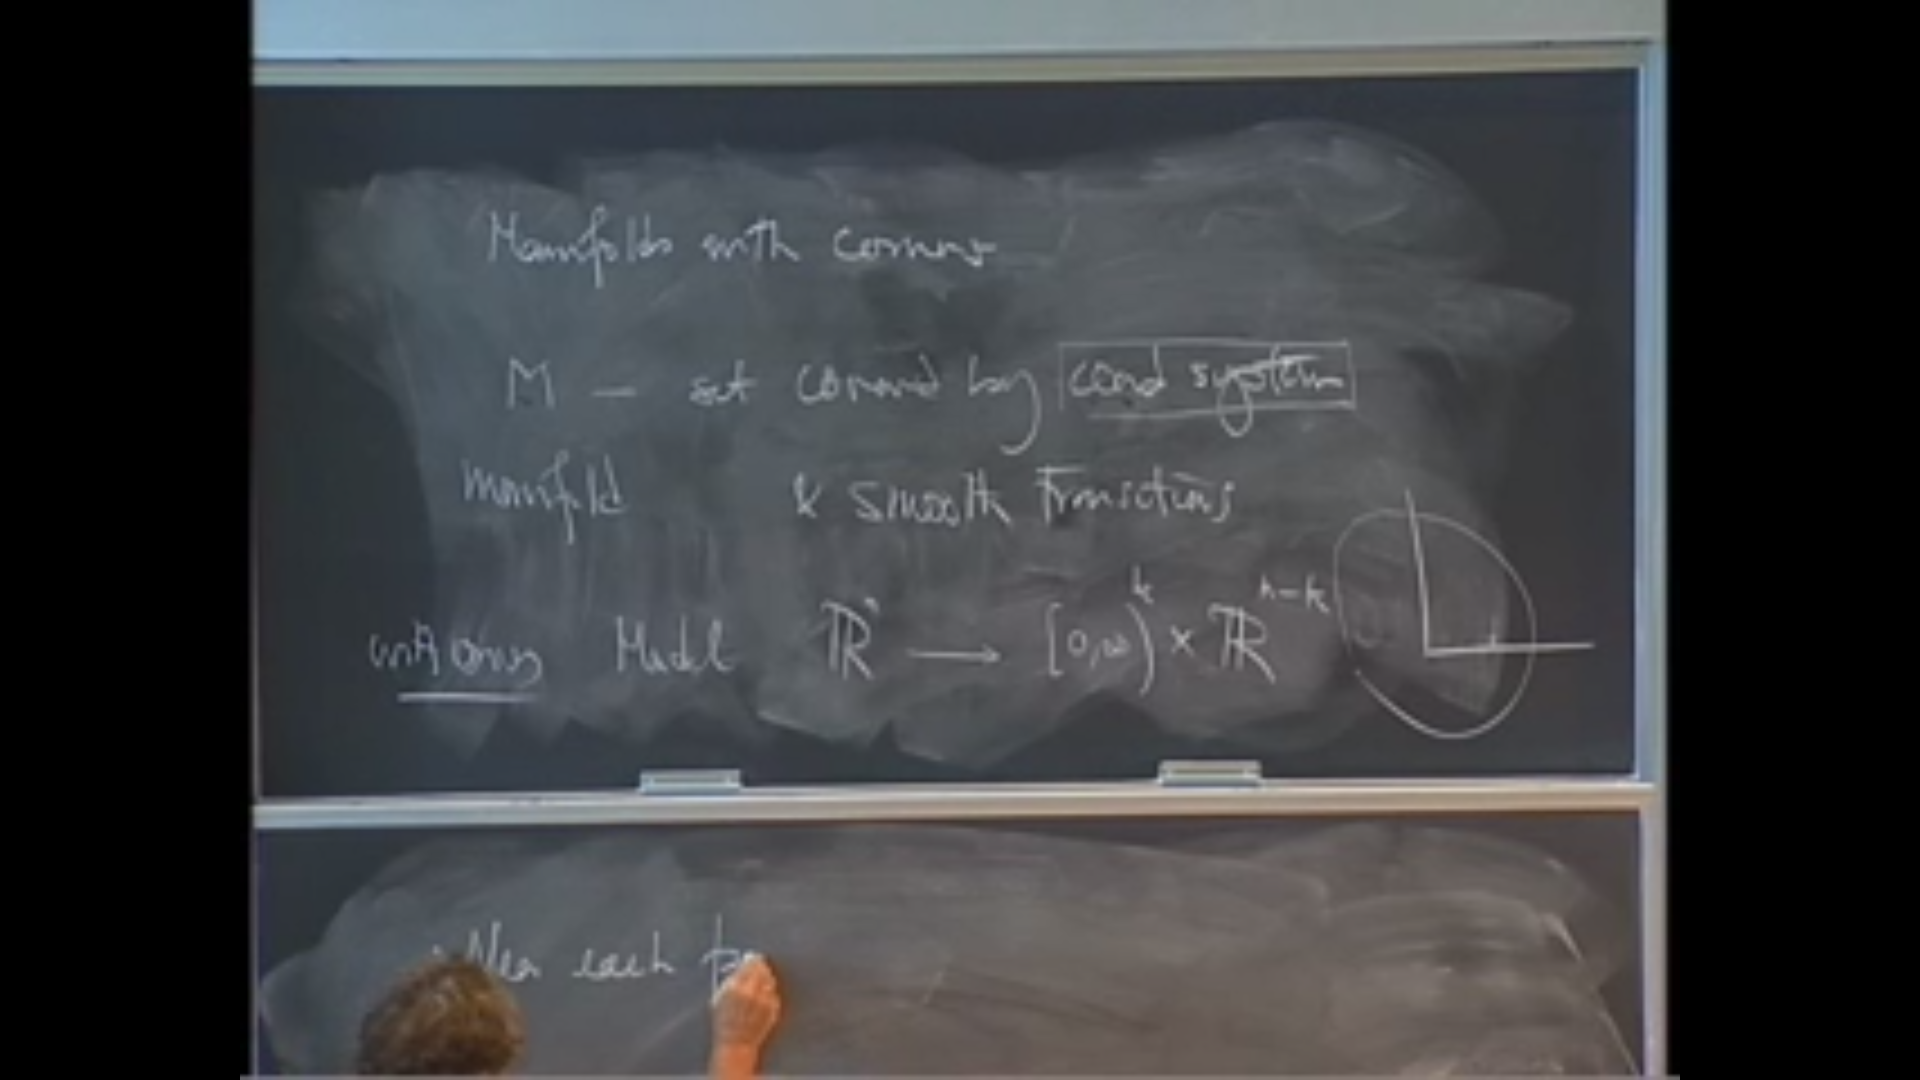 Manifolds with corners
M — set covered by coord system
manifold & smooth transitions
with corners Model ℝⁿ → [0,∞)ᵏ × ℝⁿ⁻ᵏ
Near each po